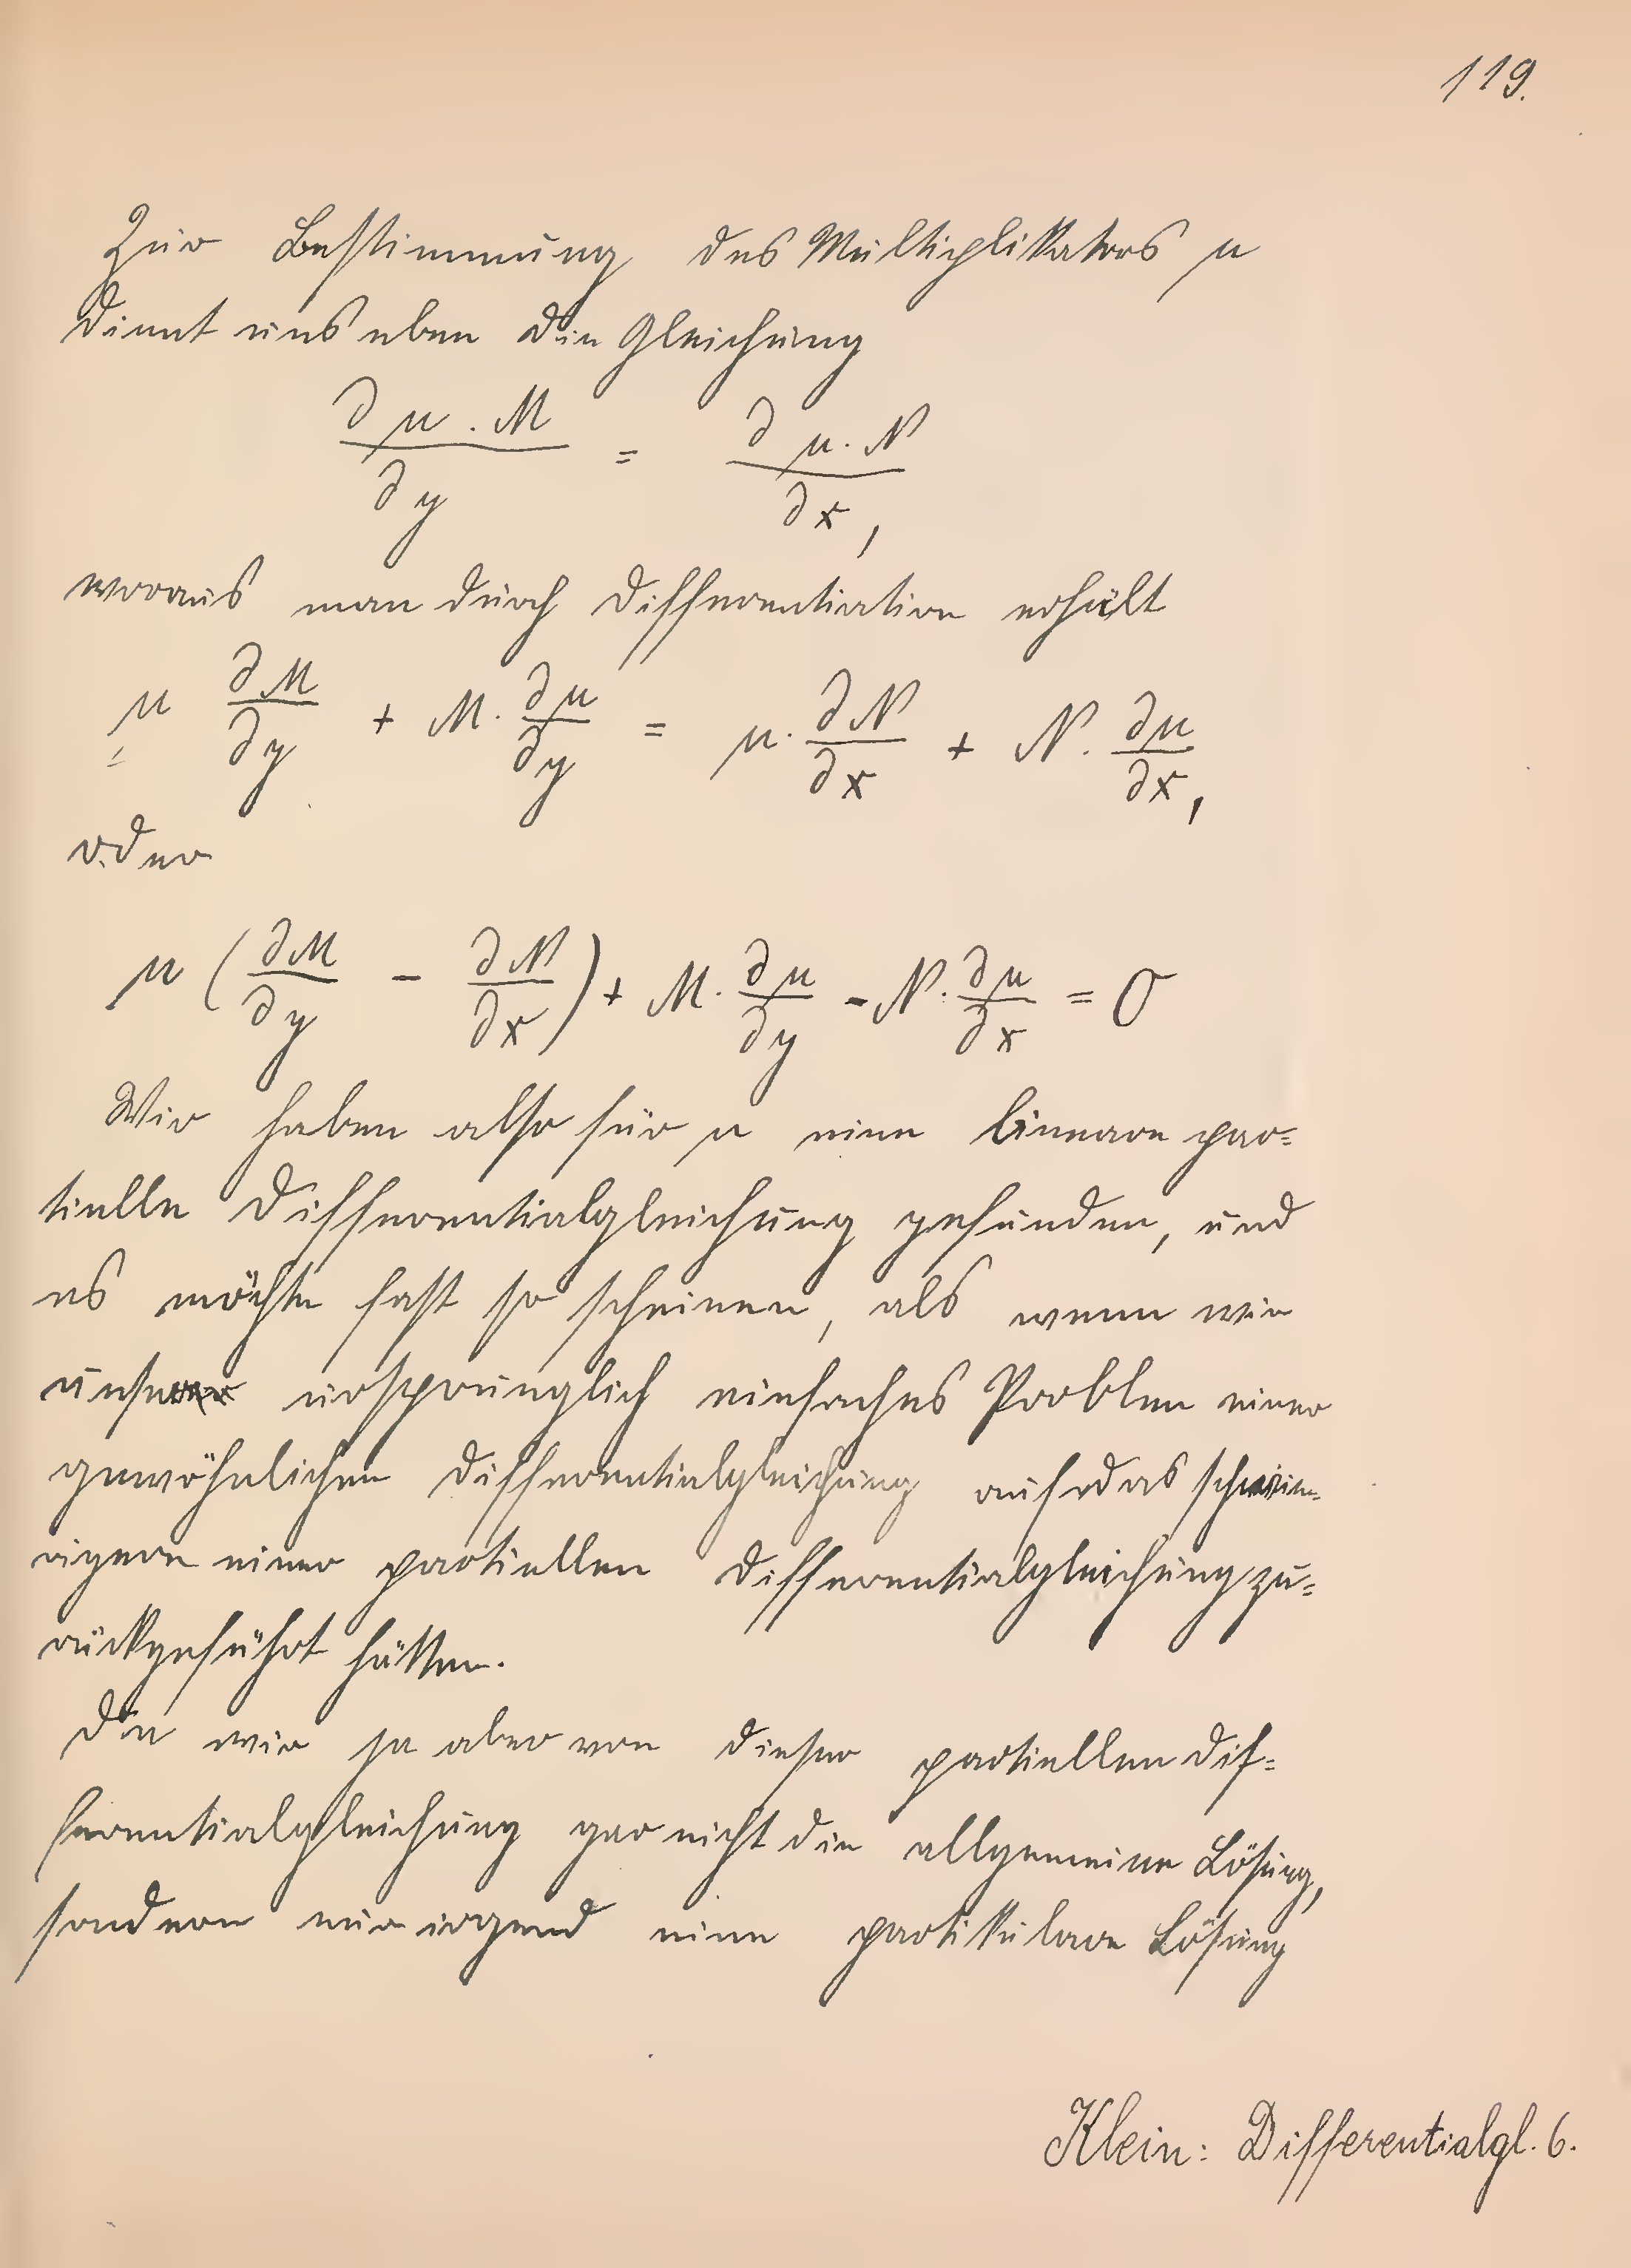 119.
Zur Bestimmung des Multiplikators μ
dient uns eben die Gleichung
∂ μ . M / ∂ y = ∂ μ . N / ∂ x ,
woraus man durch Differentiation erhält
μ ∂M / ∂y + M . ∂μ / ∂y = μ . ∂N / ∂x + N . ∂μ / ∂x ,
oder
μ ( ∂M / ∂y - ∂N / ∂x ) + M . ∂μ / ∂y - N . ∂μ / ∂x = 0
Wir haben also für μ eine lineare par=
tielle Differentialgleichung gefunden, und
es möchte fast so scheinen, als wenn wir
unser ursprünglich einfaches Problem einer
gewöhnlichen Differentialgleichung auf das schwie-
rigere einer partiellen Differentialgleichung zu=
rückgeführt hätten.
Da wir ja aber von dieser partiellen Dif=
ferentialgleichung gar nicht die allgemeine Lösung,
sondern nur irgend eine partikulare Lösung
Klein: Differentialgl. 6.